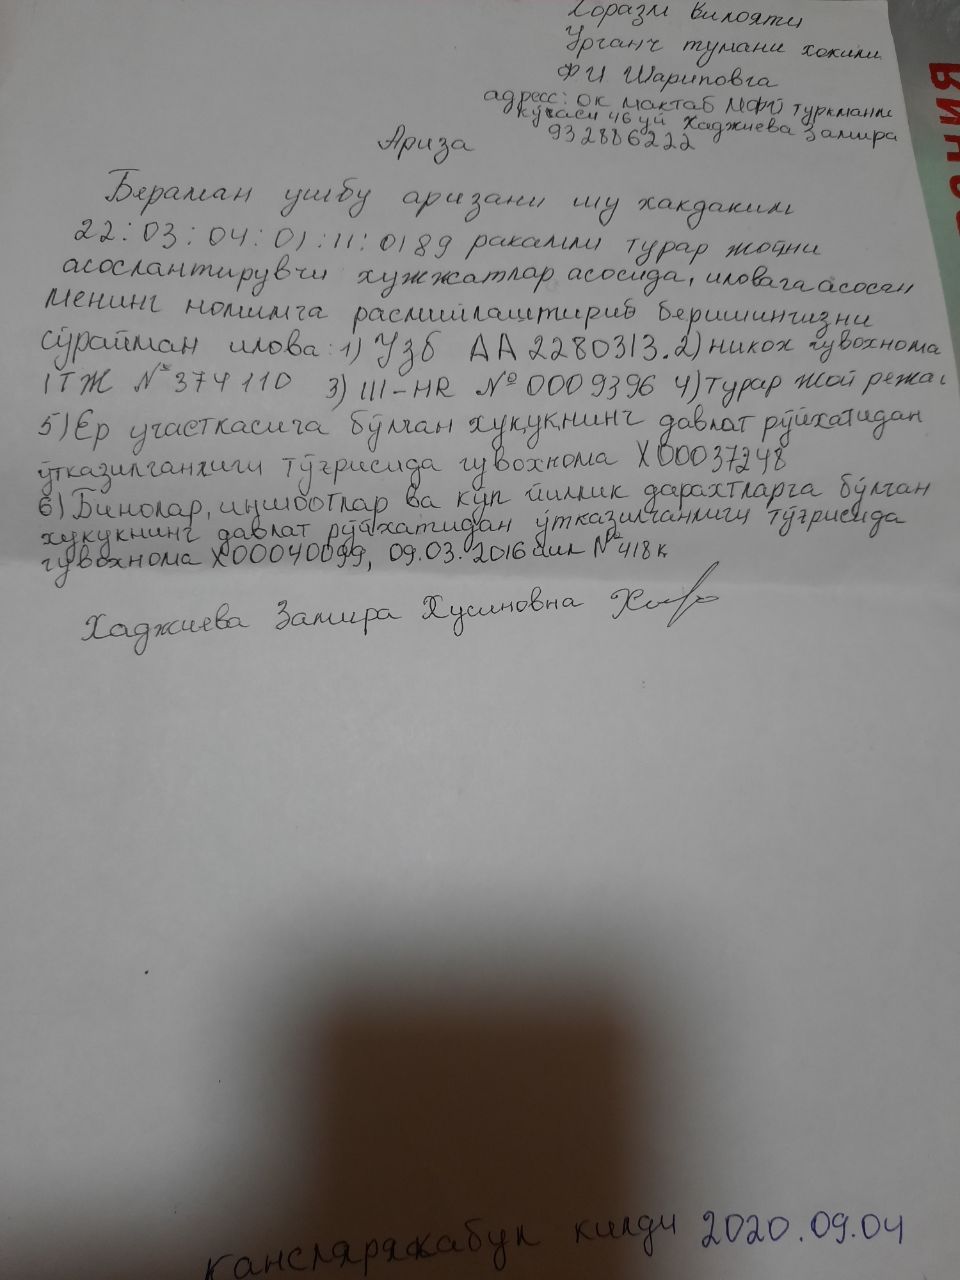 Хоразм вилояти
Урганч тумани хокими
ФИ Шариповга
адресс: ок мактаб МФЙ туркманли
кўчаси 46 уй Хаджиева Замира
932886222
Ариза
Бераман ушбу аризани шу хакдаким
22:03:04:01:11:0189 ракамли турар жойни
асослантирувчи хужжатлар асосида, иловага асосан
менинг номимга расмийлаштириб беришингизни
сўрайман илова: 1) Узб АА 2280313. 2) никох гувохнома
I ТЖ №374110 3) III-HR №0009396 4) турар жой режа
5) Ер участкасига бўлган хуқуқнинг давлат рўйхатидан
ўтказилганлиги тўғрисида гувохнома Х00037248
6) Бинолар, иншоотлар ва кўп йиллик дарахтларга бўлган
хукукнинг давлат рўйхатидан ўтказилганлиги тўғрисида
гувохнома Х00040099, 09.03.2016 йил №418 к
Хаджиева Замира Хусиновна
кансляря кабул килди 2020.09.04